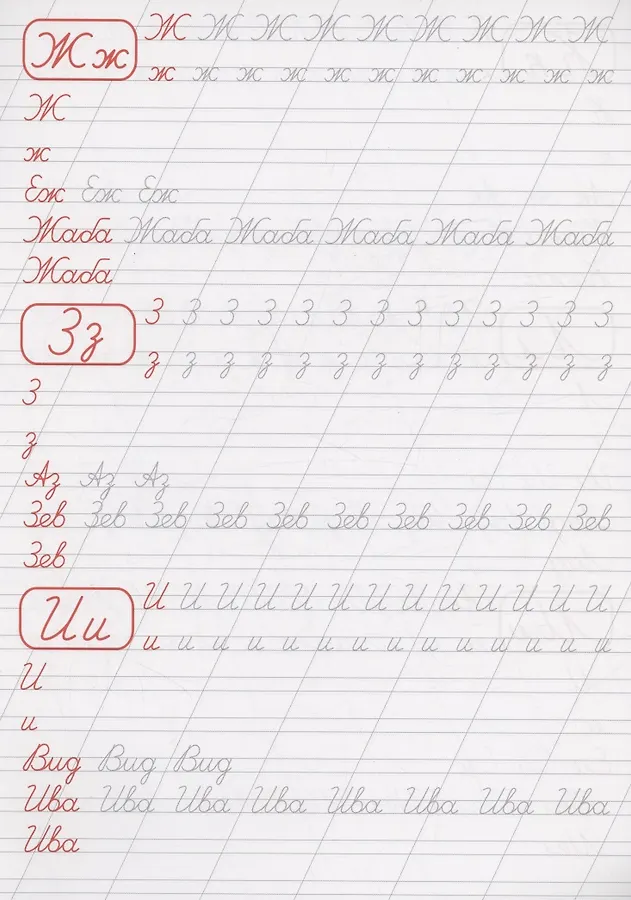 Ж ж
Ж Ж Ж Ж Ж Ж Ж Ж Ж
ж ж ж ж ж ж ж ж ж ж ж
Ж
ж
Еж Еж Еж
Жаба Жаба Жаба Жаба Жаба Жаба
Жаба
З з
З З З З З З З З З З З З З
з з з з з з з з з з з з з
З
з
Аз Аз Аз
Зев Зев Зев Зев Зев Зев Зев Зев Зев Зев
Зев
И и
И И И И И И И И И И И И И
и и и и и и и и и и и и и и
И
и
Вид Вид Вид
Ива Ива Ива Ива Ива Ива Ива Ива
Ива